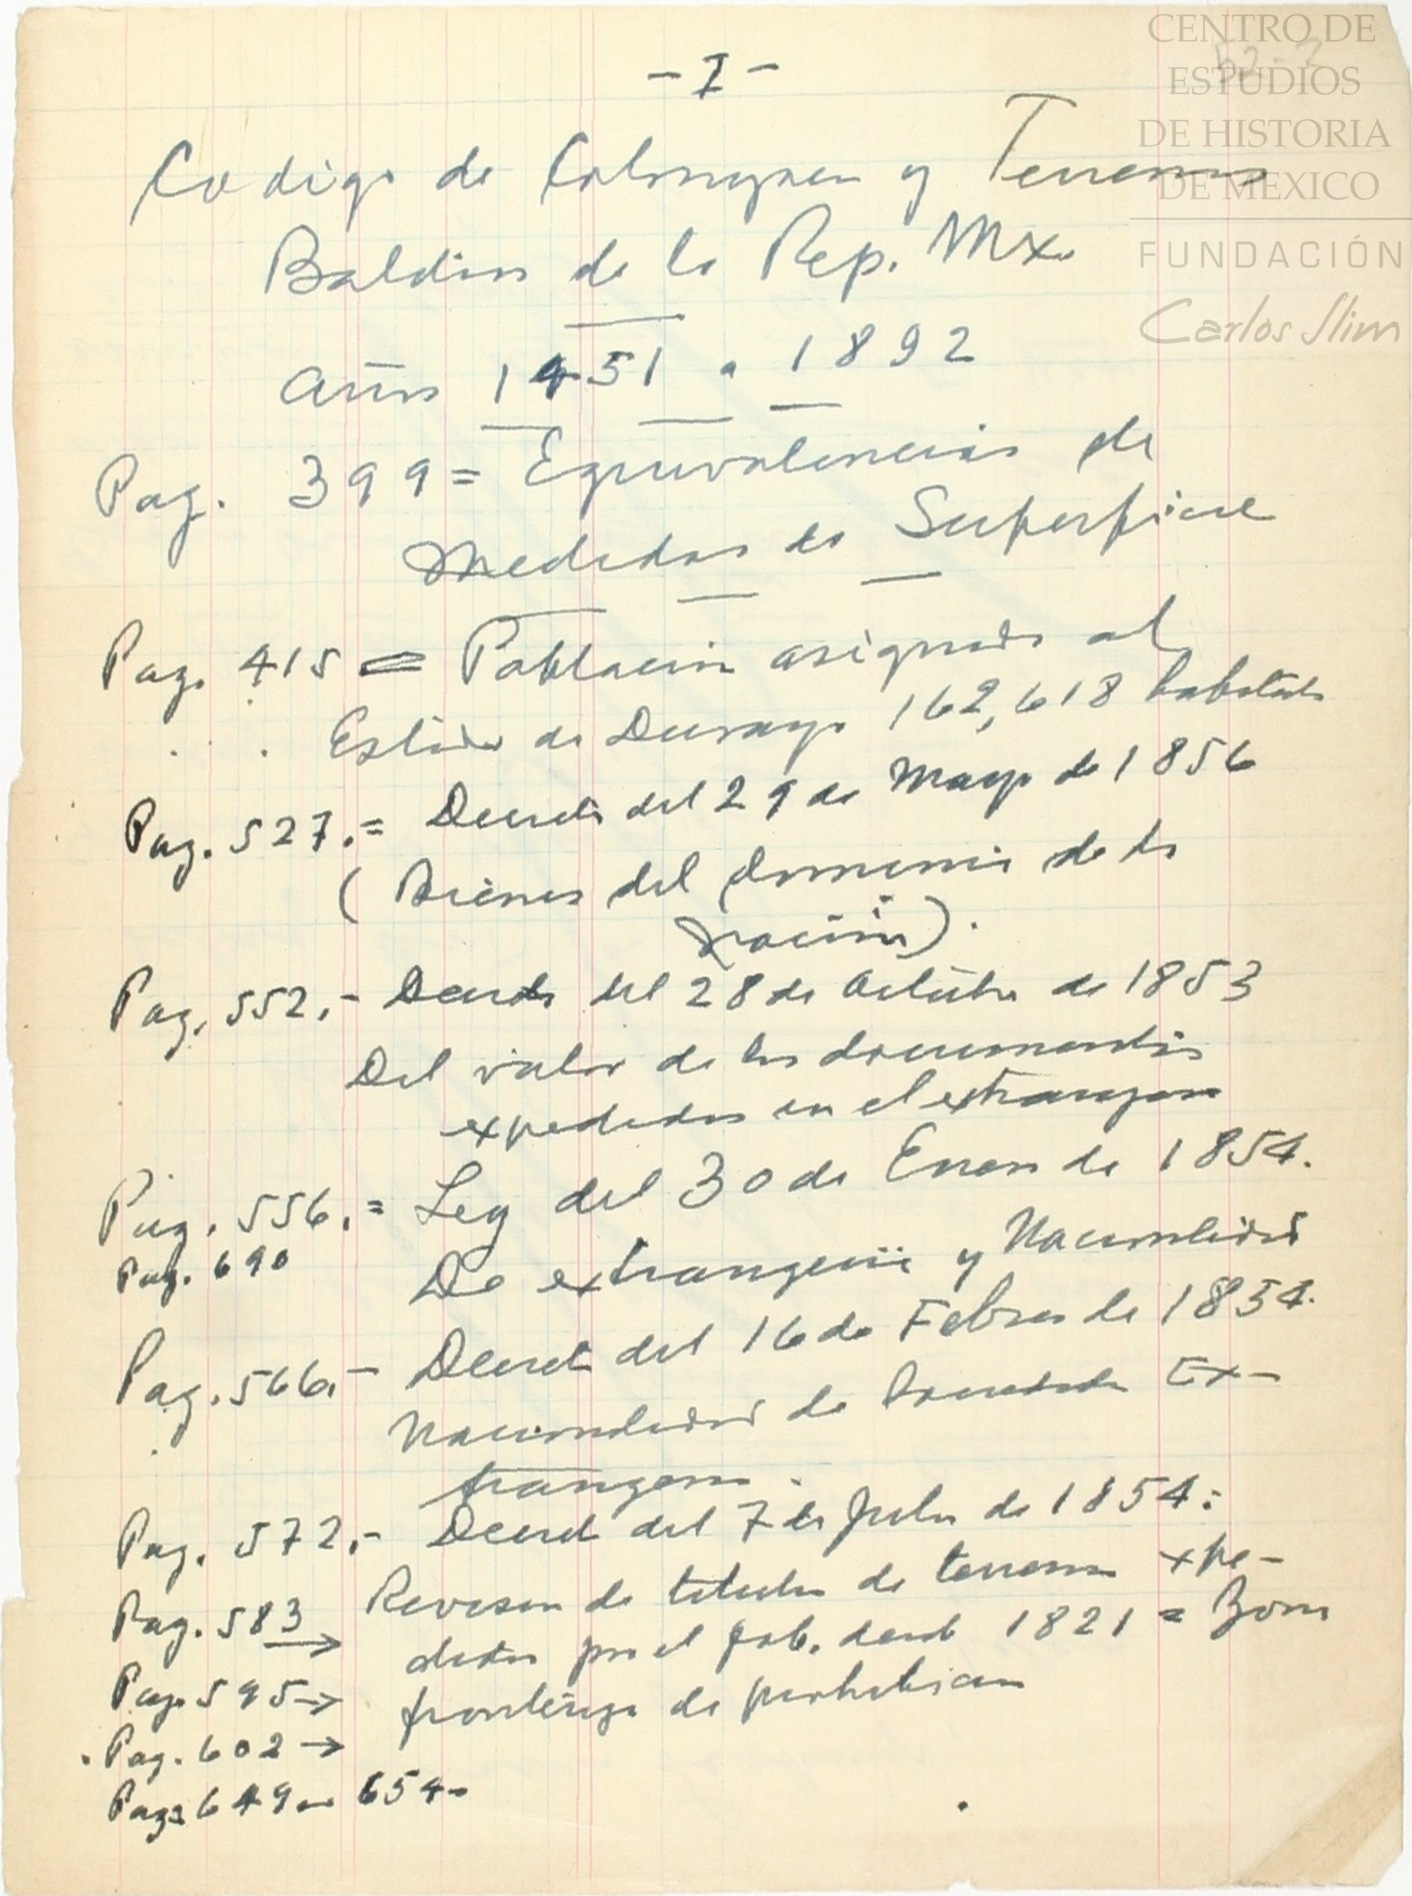 CENTRO DE
ESTUDIOS
DE HISTORIA
DE MEXICO
FUNDACIÓN
Carlos Slim
- I -
Codigo de Colonizacion y Terrenos
Baldios de la Rep. Mx.
Años 1451 a 1892
Pag. 399 = Equivalencias de
Medidas de Superficie
Pag. 415 = Poblacion asignada al
Estado de Durango 162,618 habitants
Pag. 527. = Decreto del 29 de Mayo de 1856
(Bienes del dominio de la
nación).
Pag. 552. - Decreto del 28 de Octubre de 1853
Del valor de los documentos
expedidos en el extrangero
Pag. 556. = Ley del 30 de Enero de 1854.
Pag. 690
De extrangeria y Nacionalidad
Pag. 566. - Decreto del 16 de Febrero de 1854.
Nacionalidad de Sociedades Ex-
trangeras.
Pag. 572. - Decreto del 7 de Julio de 1854:
Revision de titulos de terrenos expe-
Pag. 583 →
didos por el gob. desde 1821 = Zona
Pag. 595 →
fronteriza de prohibicion
Pag. 602 →
Pags 649 - 654 -